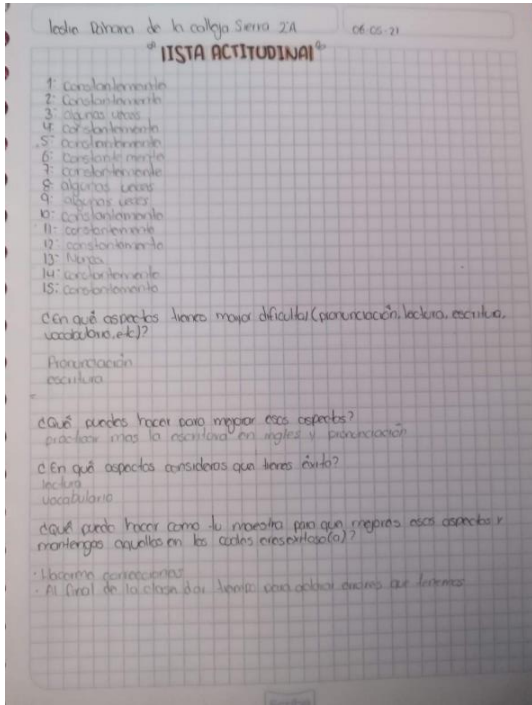 leslie Dahana de la colleja Sierra 2°A
06-05-21
"LISTA ACTITUDINAL"
1: Constantemente
2: Constantemente
3: algunas veces
4: constantemente
5: constantemente
6: constantemente
7: constantemente
8: algunas veces
9: algunas veces
10: constantemente
11: constantemente
12: constantemente
13: Nunca
14: constantemente
15: constantemente
¿En qué aspectos tienes mayor dificultad (pronunciación, lectura, escritura,
vocabulario, etc)?
Pronunciación
escritura
¿Qué puedes hacer para mejorar esos aspectos?
practicar mas la escritura en ingles y pronunciación
¿En qué aspectos consideras que tienes éxito?
lectura
vocabulario
¿Qué puedo hacer como tu maestra para que mejores esos aspectos y
mantengas aquellos en los cuales eres exitoso(a)?
· Hacerme correcciones
· Al final de la clase dar tiempo para aclarar que tenemos